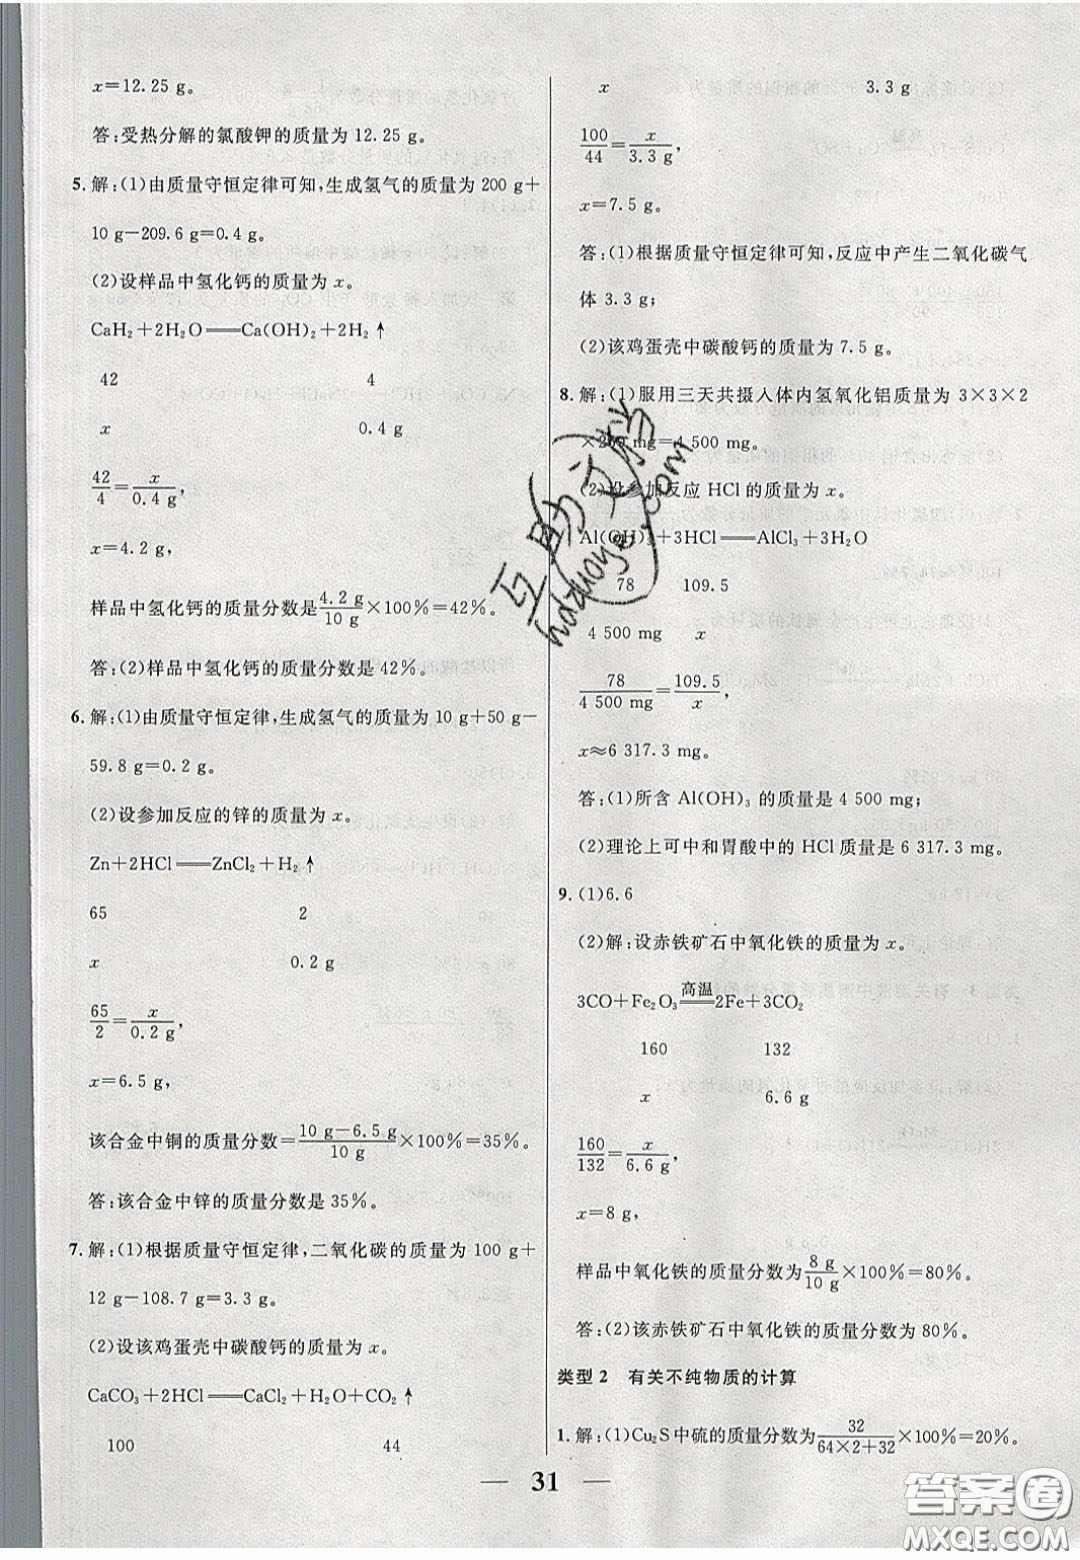 x=12.25 g。
答:受热分解的氯酸钾的质量为 12.25 g。
5. 解:(1)由质量守恒定律可知,生成氢气的质量为 200 g+
10 g-209.6 g=0.4 g。
(2)设样品中氢化钙的质量为 x。
CaH₂+2H₂O══Ca(OH)₂+2H₂↑
42 4
x 0.4 g
42/4=x/0.4 g,
x=4.2 g,
样品中氢化钙的质量分数是4.2 g/10 g×100%=42%。
答:(2)样品中氢化钙的质量分数是 42%。
6. 解:(1)由质量守恒定律,生成氢气的质量为 10 g+50 g-
59.8 g=0.2 g。
(2)设参加反应的锌的质量为 x。
Zn+2HCl══ZnCl₂+H₂↑
65 2
x 0.2 g
65/2=x/0.2 g,
x=6.5 g,
该合金中铜的质量分数=10 g-6.5 g/10 g×100%=35%。
答:该合金中锌的质量分数是 35%。
7. 解:(1)根据质量守恒定律,二氧化碳的质量为 100 g+
12 g-108.7 g=3.3 g。
(2)设该鸡蛋壳中碳酸钙的质量为 x。
CaCO₃+2HCl══CaCl₂+H₂O+CO₂↑
100 44
x 3.3 g
100/44=x/3.3 g,
x=7.5 g。
答:(1)根据质量守恒定律可知,反应中产生二氧化碳气
体 3.3 g;
(2)该鸡蛋壳中碳酸钙的质量为 7.5 g。
8. 解:(1)服用三天共摄人体内氢氧化铝质量为 3×3×2
×250 mg=4 500 mg。
(2)设参加反应 HCl 的质量为 x。
Al(OH)₃+3HCl══AlCl₃+3H₂O
78 109.5
4 500 mg x
78/4 500 mg=109.5/x,
x≈6 317.3 mg。
答:(1)所含 Al(OH)₃ 的质量是 4 500 mg;
(2)理论上可中和胃酸中的 HCl 质量是 6 317.3 mg。
9. (1)6.6
(2)解:设赤铁矿石中氧化铁的质量为 x。
3CO+Fe₂O₃高温══2Fe+3CO₂
160 132
x 6.6 g
160/132=x/6.6 g,
x=8 g,
样品中氧化铁的质量分数为8 g/10 g×100%=80%。
答:(2)该赤铁矿石中氧化铁的质量分数为 80%。
类型 2 有关不纯物质的计算
1. 解:(1)Cu₂S 中硫的质量分数为32/64×2+32×100%=20%。
31
互助文档
huzuoye.com
答案圈
MXQE.COM